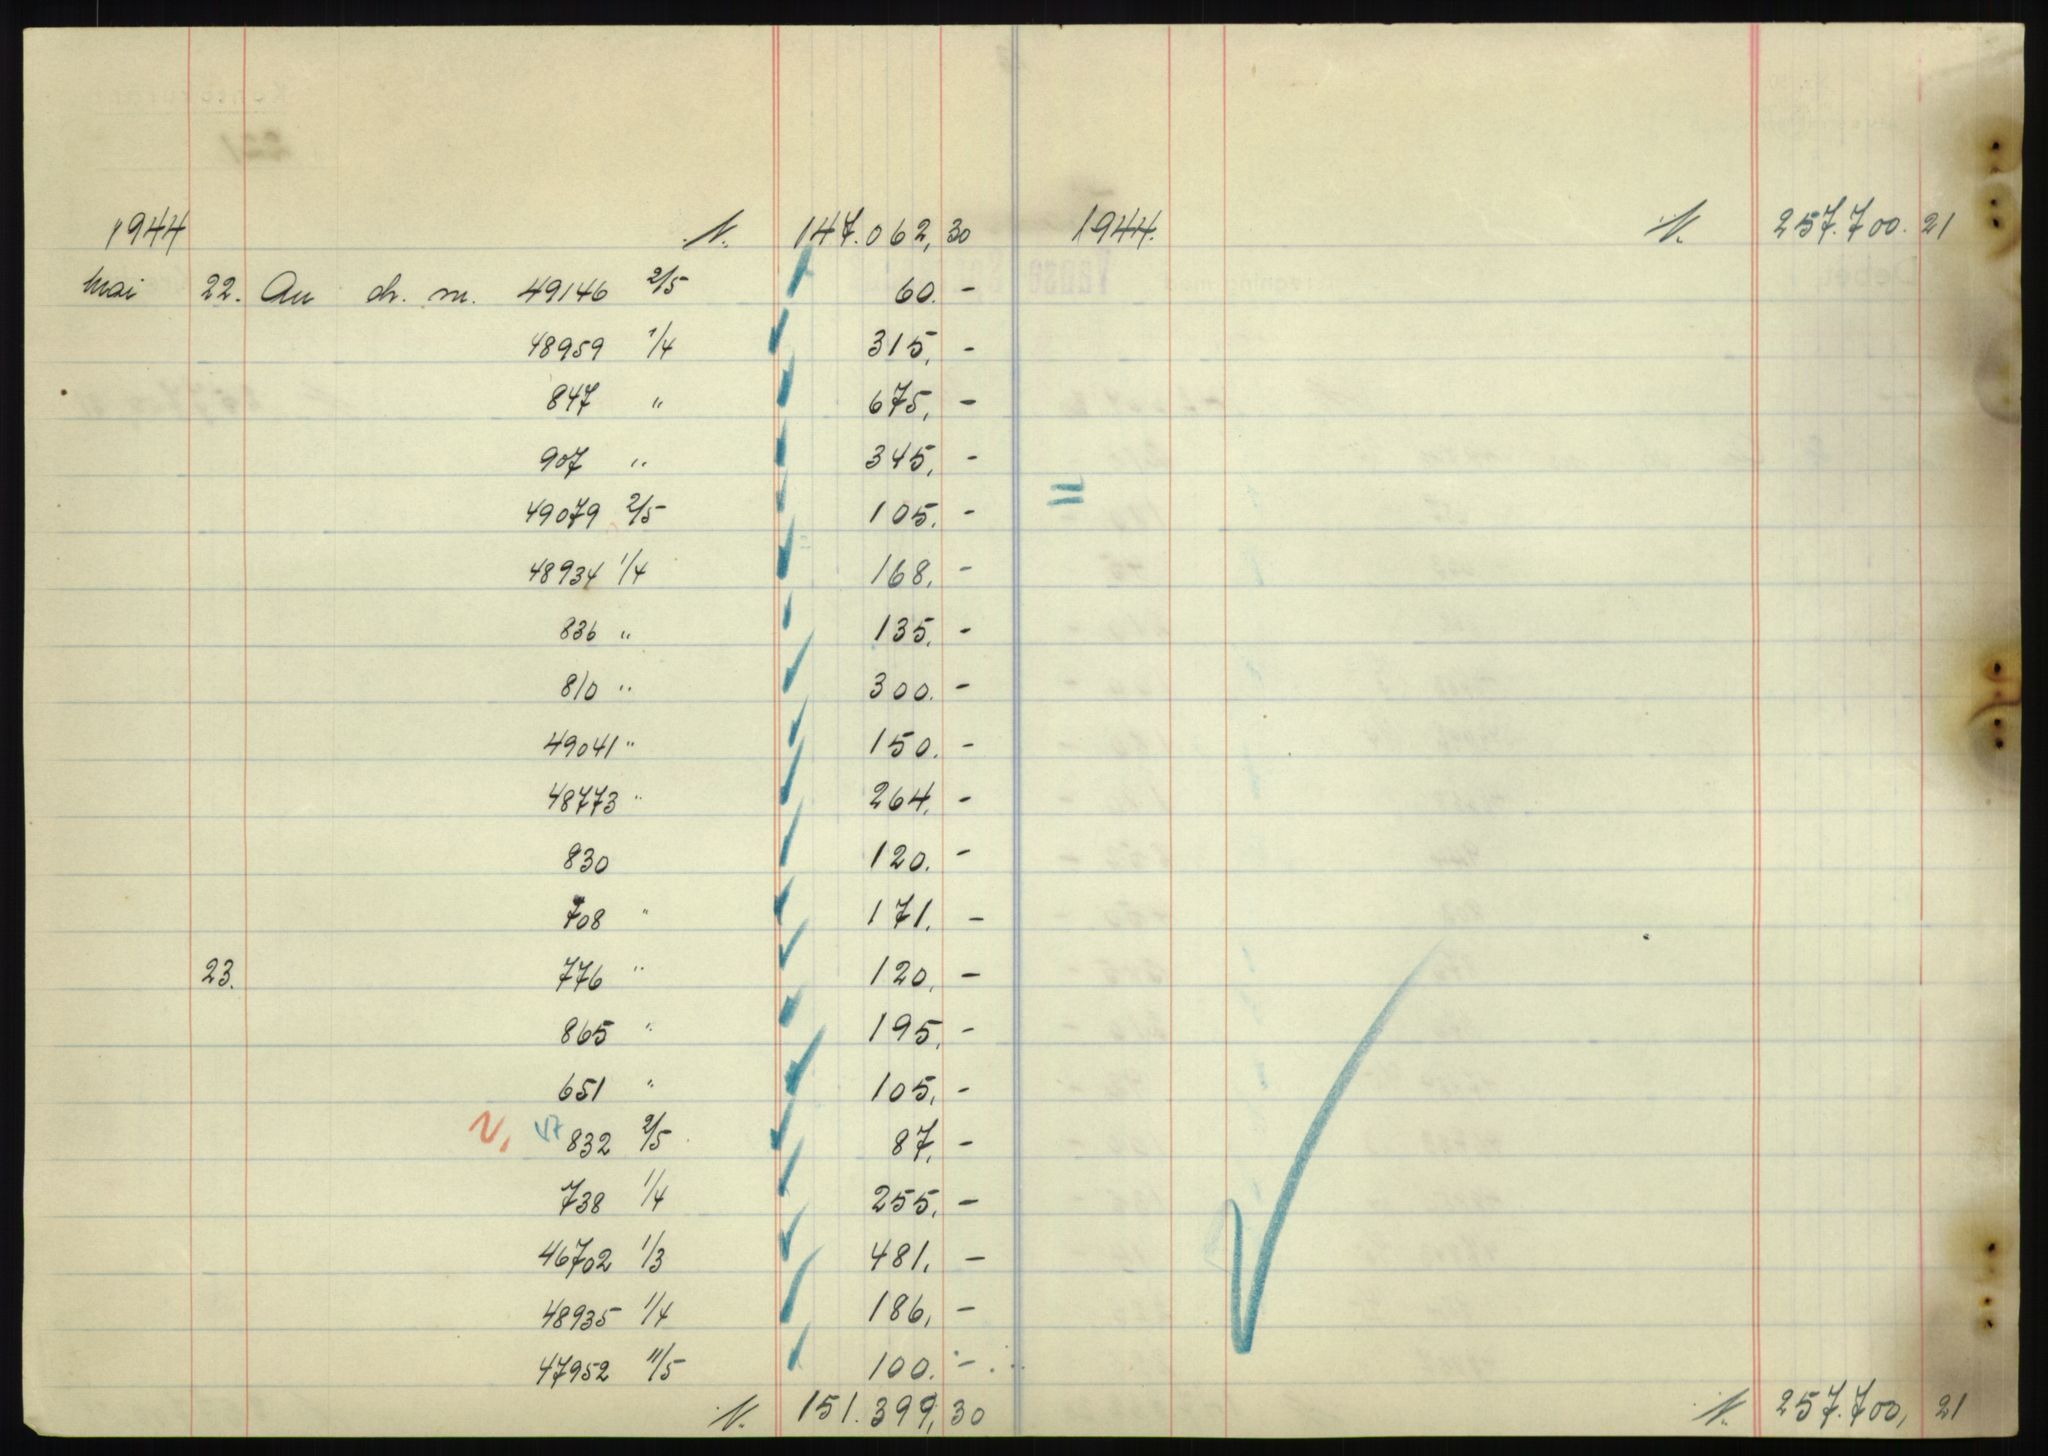 1944 ./. 147.062,30 1944. ./. 257.700.21
Mai 22. An ch. m. 49146 2/5 60.-
48959 1/4 315,-
847 " 675,-
907 " 345,-
49079 2/5 105.-
48934 1/4 168,-
836 " 135.-
810 " 300.-
49041 " 150.-
48773 " 264.-
830 120.-
708 " 171.-
23. 776 " 120,-
865 " 195,-
651 " 105,-
832 2/5 87,-
738 1/4 255,-
46702 1/3 481,-
48935 1/4 186,-
47952 11/5 100.-
./. 151.399,30 ./. 257.700,21